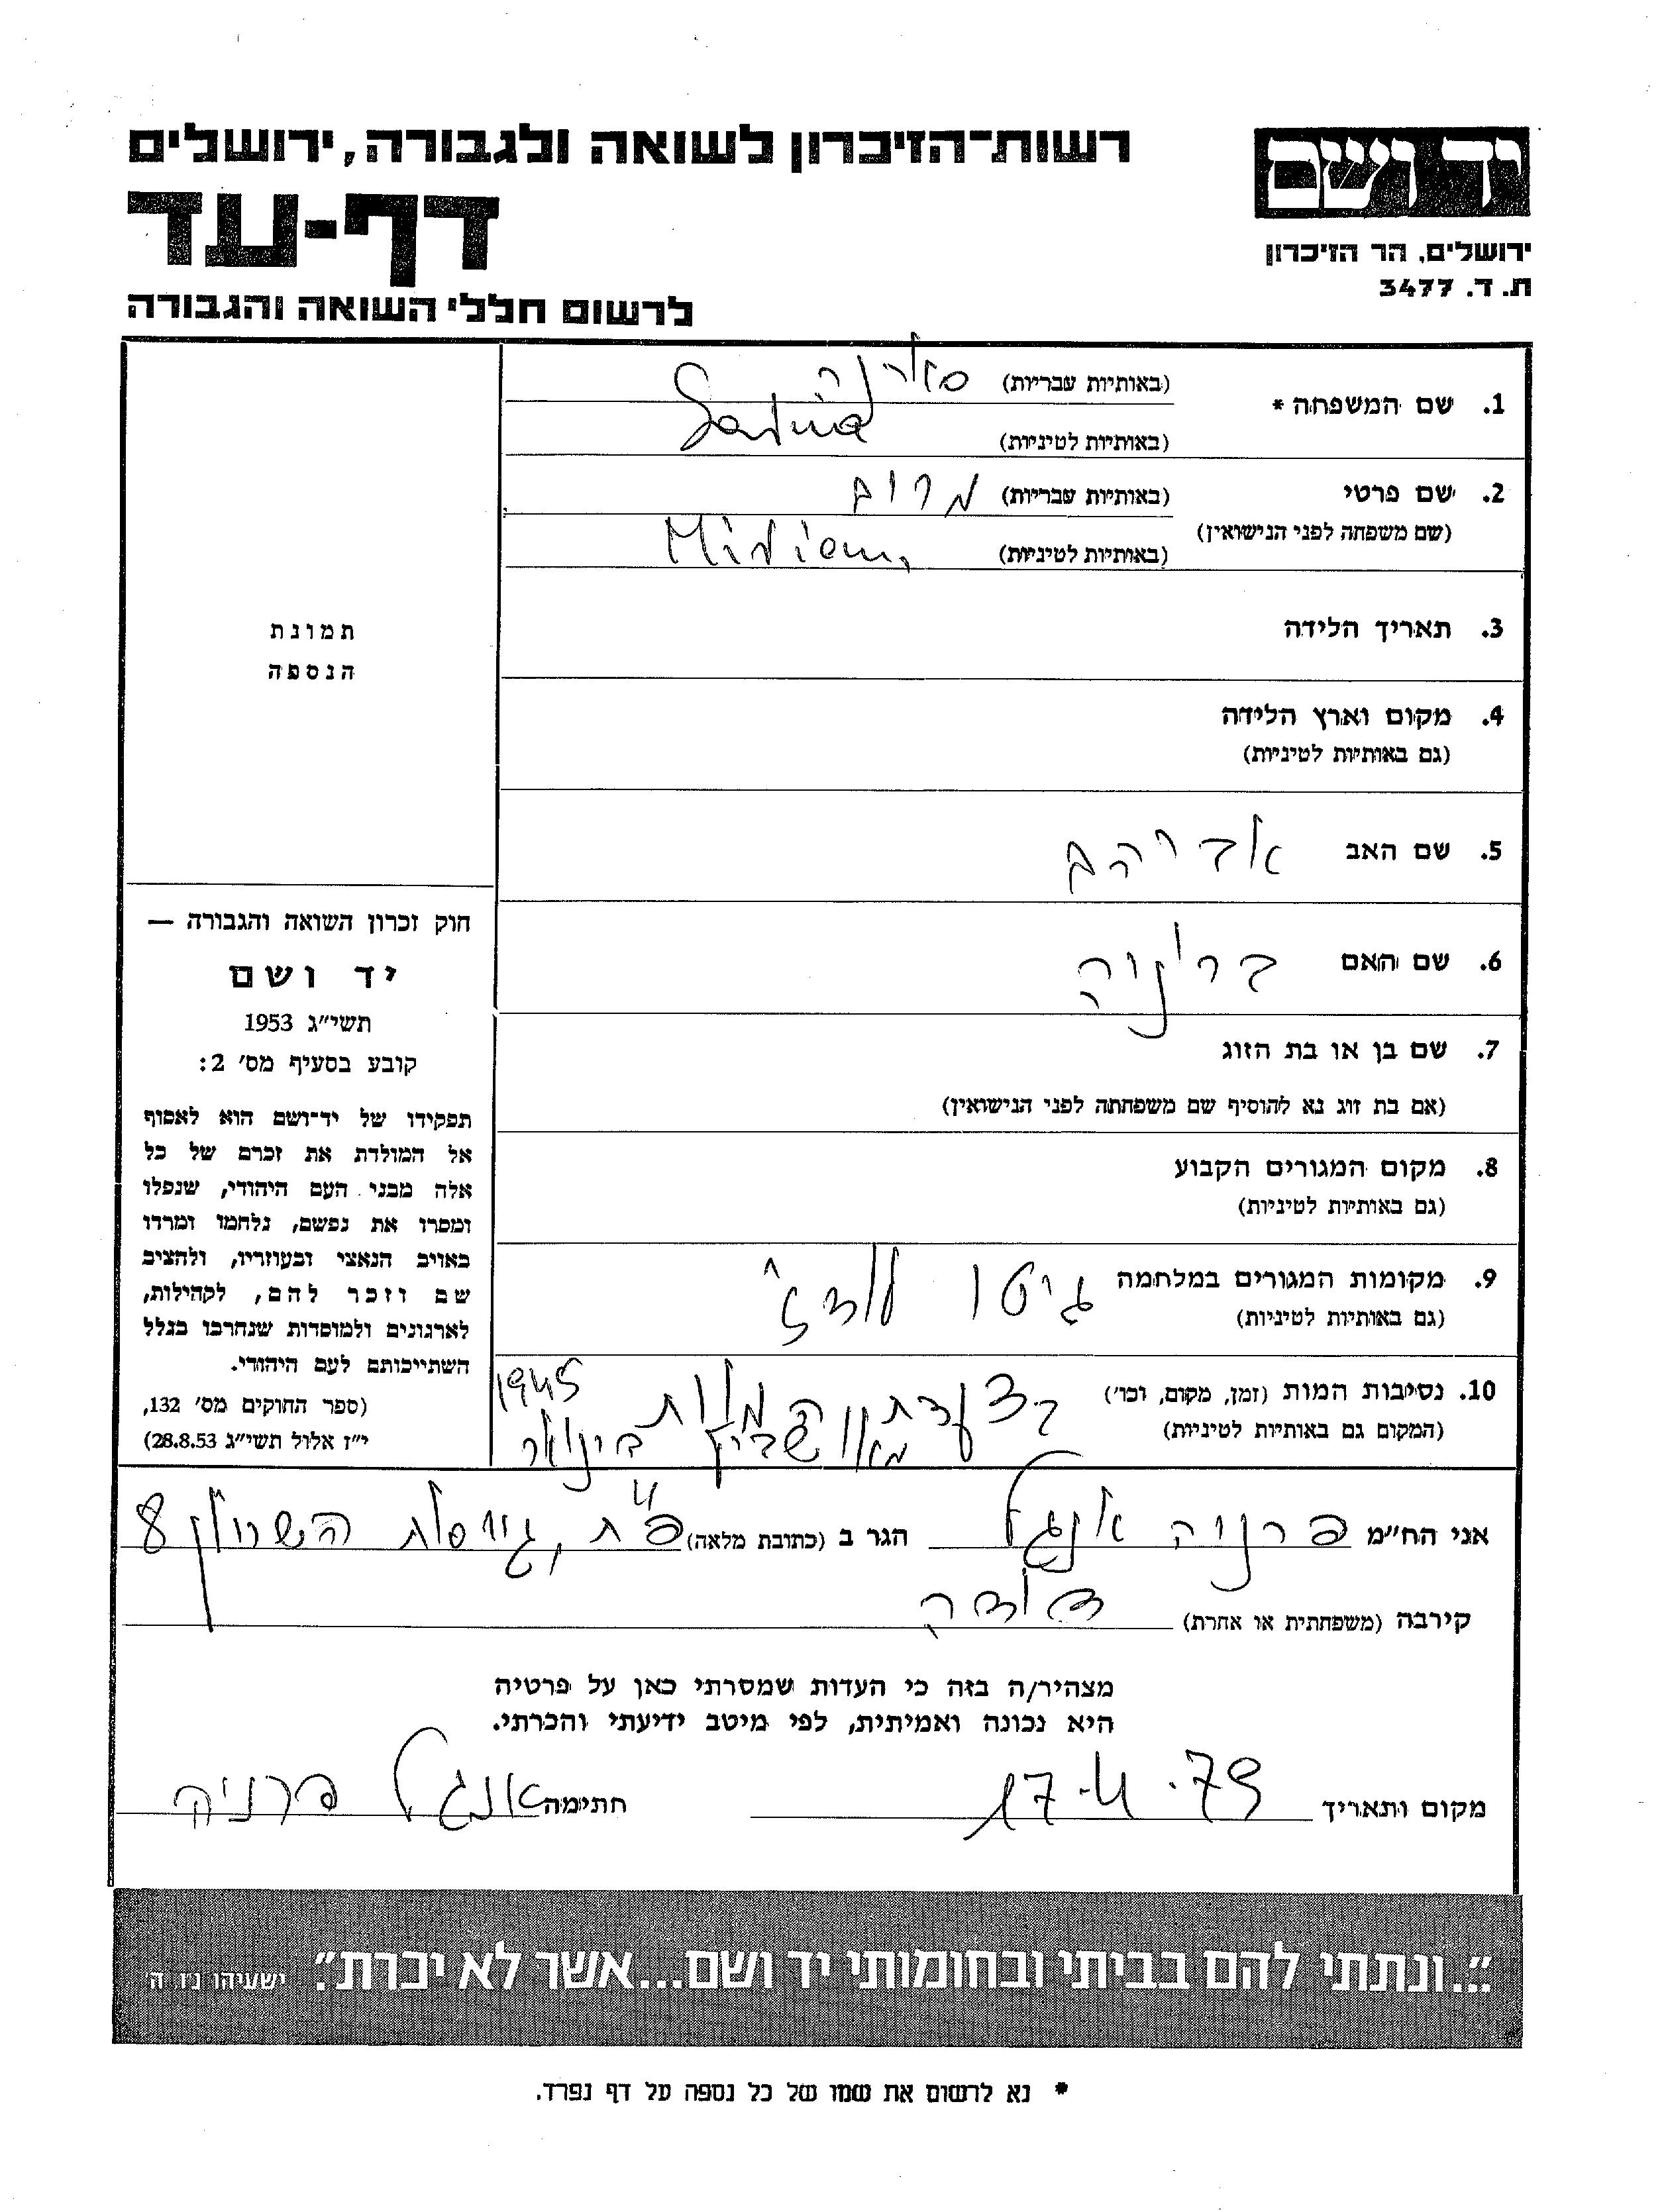 רשות־הזיכרון לשואה ולגבורה, ירושלים
יד ושם
דף-עד
ירושלים, הר הזיכרון
ת. ד. 3477
לרשום חללי השואה והגבורה
1. שם המשפחה * (באותיות עבריות)
(באותיות לטיניות)
2. שם פרטי (באותיות עבריות) מרים
(שם משפחה לפני הנישואין) (באותיות לטיניות) Miriam
3. תאריך הלידה
4. מקום וארץ הלידה
(גם באותיות לטיניות)
5. שם האב אברהם
6. שם האם
7. שם בן או בת הזוג
(אם בת זוג נא להוסיף שם משפחתה לפני הנישואין)
8. מקום המגורים הקבוע
(גם באותיות לטיניות)
9. מקומות המגורים במלחמה גיטו לודז'
(גם באותיות לטיניות)
10. נסיבות המות (זמן, מקום, וכו') בצעדת המות 1945
(המקום גם באותיות לטיניות) מאושביץ בינואר
תמונת
הנספה
חוק זכרון השואה והגבורה —
יד ושם
תשי"ג 1953
קובע בסעיף מס' 2:
תפקידו של יד־ושם הוא לאסוף
אל המולדת את זכרם של כל
אלה מבני העם היהודי, שנפלו
ומסרו את נפשם, נלחמו ומרדו
באויב הנאצי ובעוזריו, ולהציב
שם וזכר להם, לקהילות,
לארגונים ולמוסדות שנחרבו בגלל
השתייכותם לעם היהודי.
(ספר החוקים מס' 132,
י"ז אלול תשי"ג 28.8.53)
אני הח"מ פרניה אנגל הגר ב (כתובת מלאה) פ"ת, 8
קירבה (משפחתית או אחרת) דודה
מצהיר/ה בזה כי העדות שמסרתי כאן על פרטיה
היא נכונה ואמיתית, לפי מיטב ידיעתי והכרתי.
מקום ותאריך חתימה אנגל פרניה
"...ונתתי להם בביתי ובחומותי יד ושם...אשר לא יכרת". ישעיהו נ"ו ה'
* נא לרשום את שמו של כל נספה על דף נפרד.